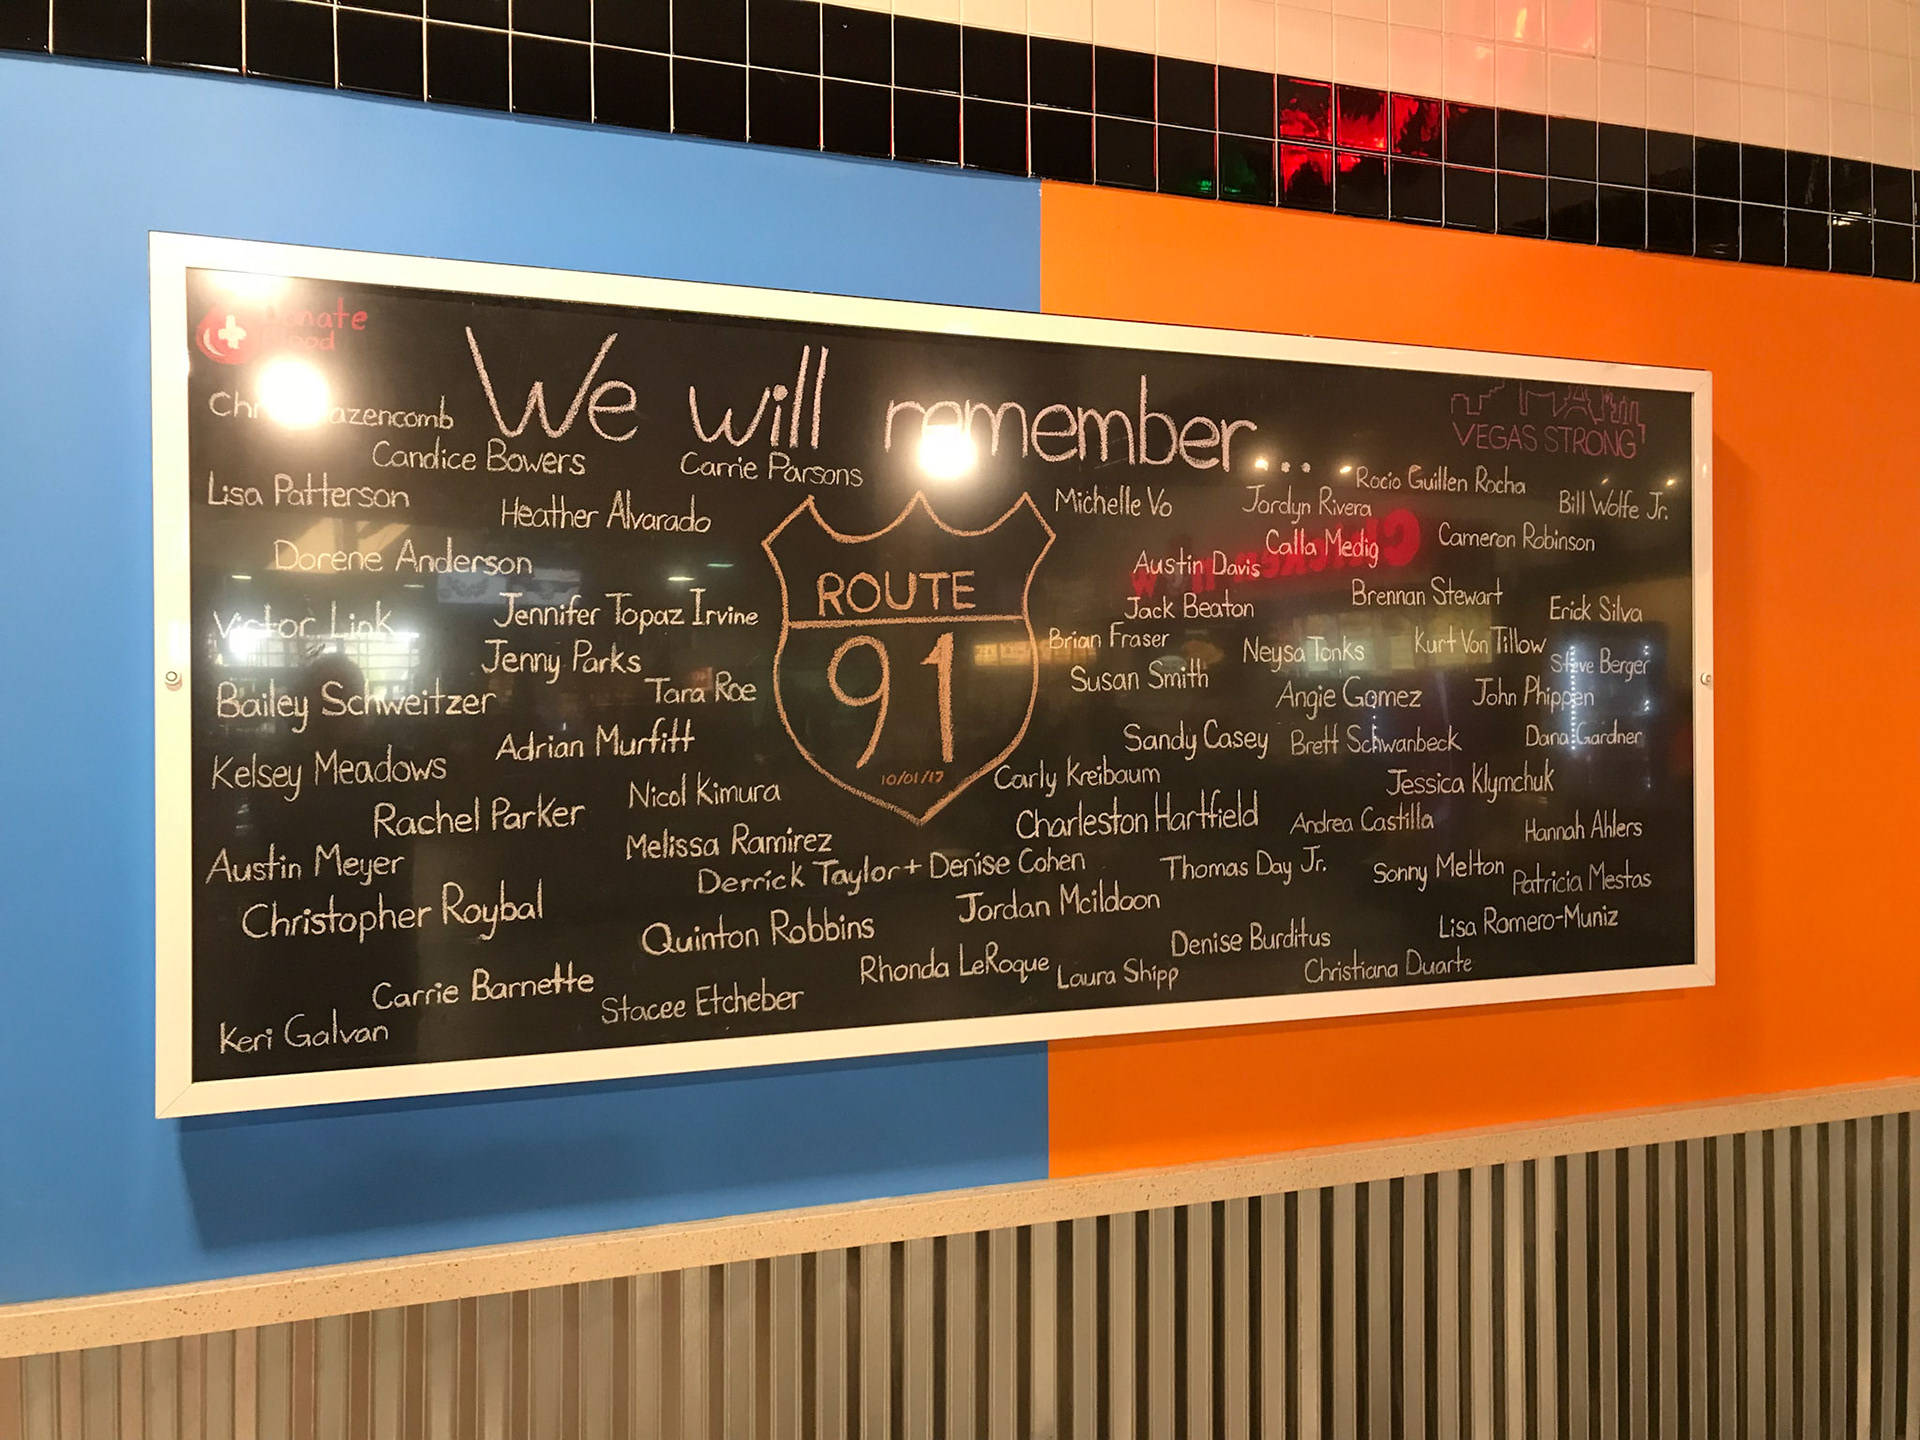 We will remember...
VEGAS STRONG
Candice Bowers
Carrie Parsons
Lisa Patterson
Heather Alvarado
Dorene Anderson
Victor Link
Jennifer Topaz Irvine
Jenny Parks
Bailey Schweitzer
Tara Roe
Kelsey Meadows
Adrian Murfitt
Nicol Kimura
Rachel Parker
Melissa Ramirez
Austin Meyer
Derrick Taylor + Denise Cohen
Christopher Roybal
Quinton Robbins
Jordan Mcildoon
Carrie Barnette
Stacee Etcheber
Rhonda LeRoque
Laura Shipp
Keri Galvan
ROUTE
91
10/01/17
Michelle Vo
Jordyn Rivera
Rocio Guillen Rocha
Bill Wolfe Jr.
Calla Medig
Cameron Robinson
Austin Davis
Jack Beaton
Brennan Stewart
Erick Silva
Brian Fraser
Neysa Tonks
Kurt Von Tillow
Steve Berger
Susan Smith
Angie Gomez
John Phippen
Sandy Casey
Brett Schwanbeck
Dana Gardner
Carly Kreibaum
Jessica Klymchuk
Charleston Hartfield
Andrea Castilla
Hannah Ahlers
Thomas Day Jr.
Sonny Melton
Patricia Mestas
Denise Burditus
Lisa Romero-Muniz
Christiana Duarte